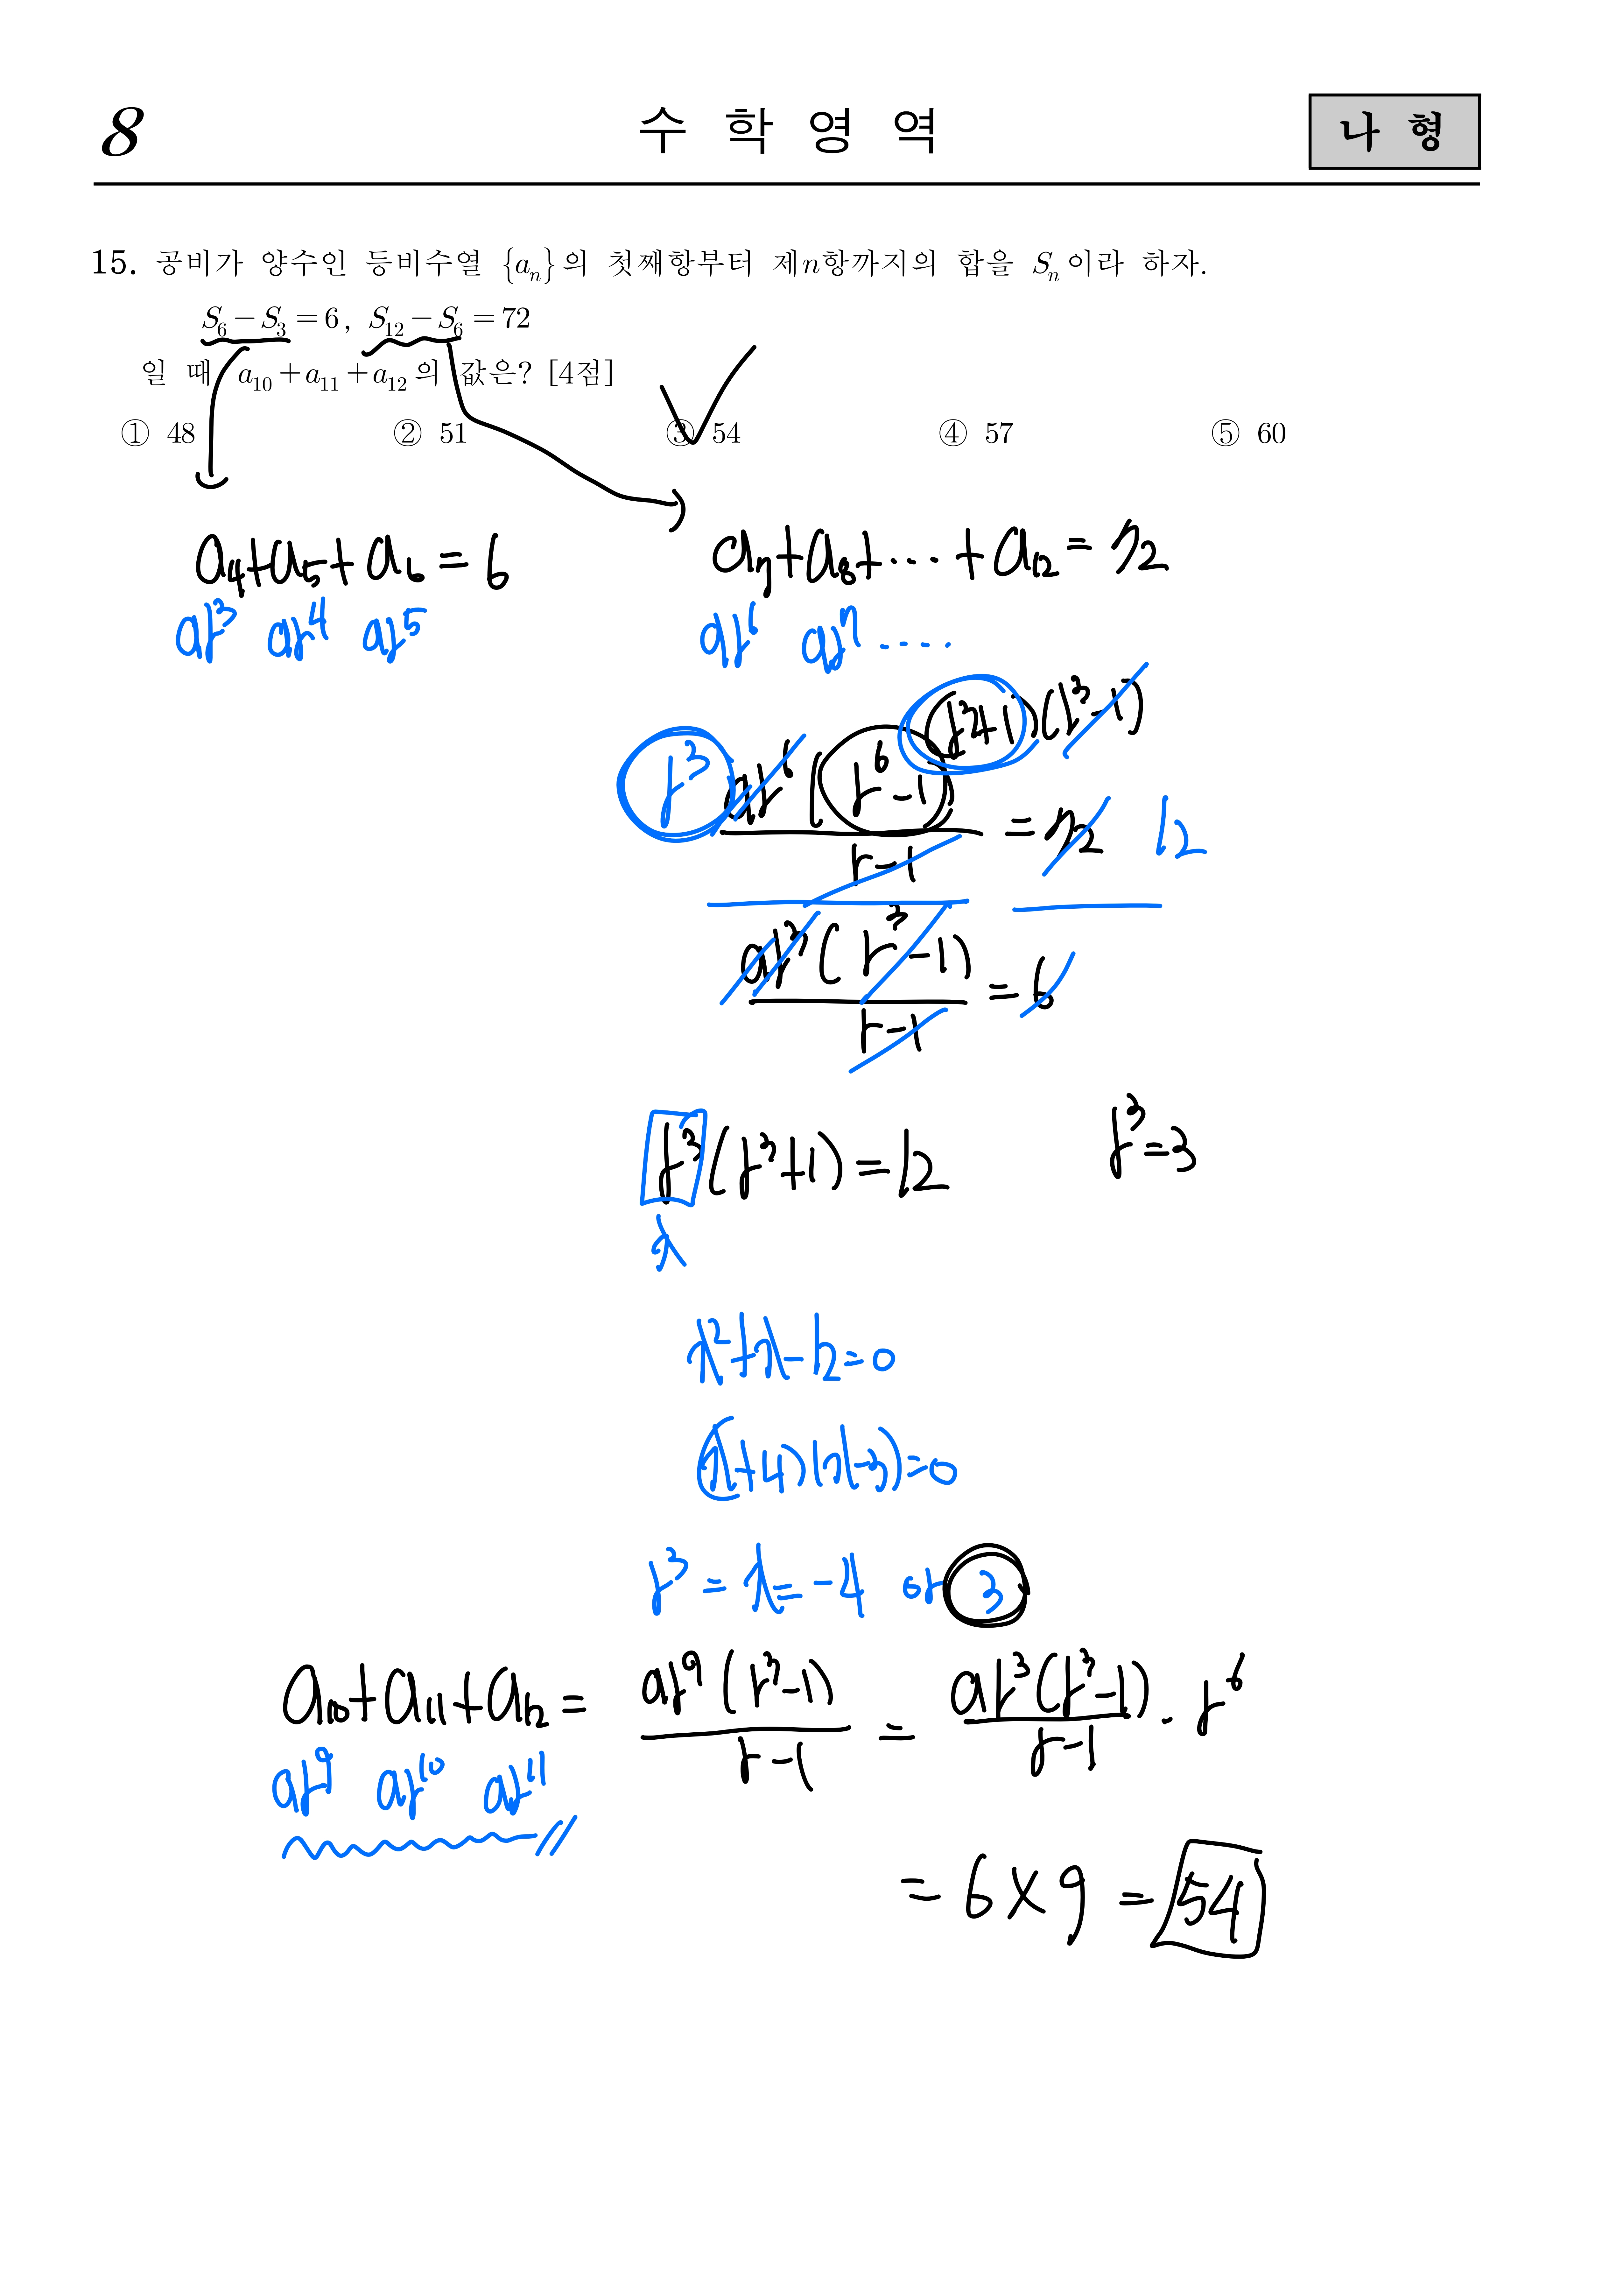 8 수 학 영 역 나 형
15. 공비가 양수인 등비수열 {aₙ}의 첫째항부터 제n항까지의 합을 Sₙ이라 하자.
S₆−S₃=6, S₁₂−S₆=72
일 때 a₁₀+a₁₁+a₁₂의 값은? [4점]
① 48 ② 51 ③ 54 ④ 57 ⑤ 60
a₄+a₅+a₆=6 a₇+a₈+⋯+a₁₂=72
ar³ ar⁴ ar⁵ ar⁶ ar⁷ ⋯⋯
(r³+1)(r³−1)
r³ ar⁶(r⁶−1)
=72 12
r−1
ar³(r³−1)
=6
r−1
r³(r³+1)=12 r³=3
x
x²+x−12=0
(x+4)(x−3)=0
r³=x=−4 or 3
a₁₀+a₁₁+a₁₂= ar⁹(r³−1) / r−1 = ar³(r³−1) / r−1 · r⁶
ar⁹ ar¹⁰ ar¹¹
=6×9=54